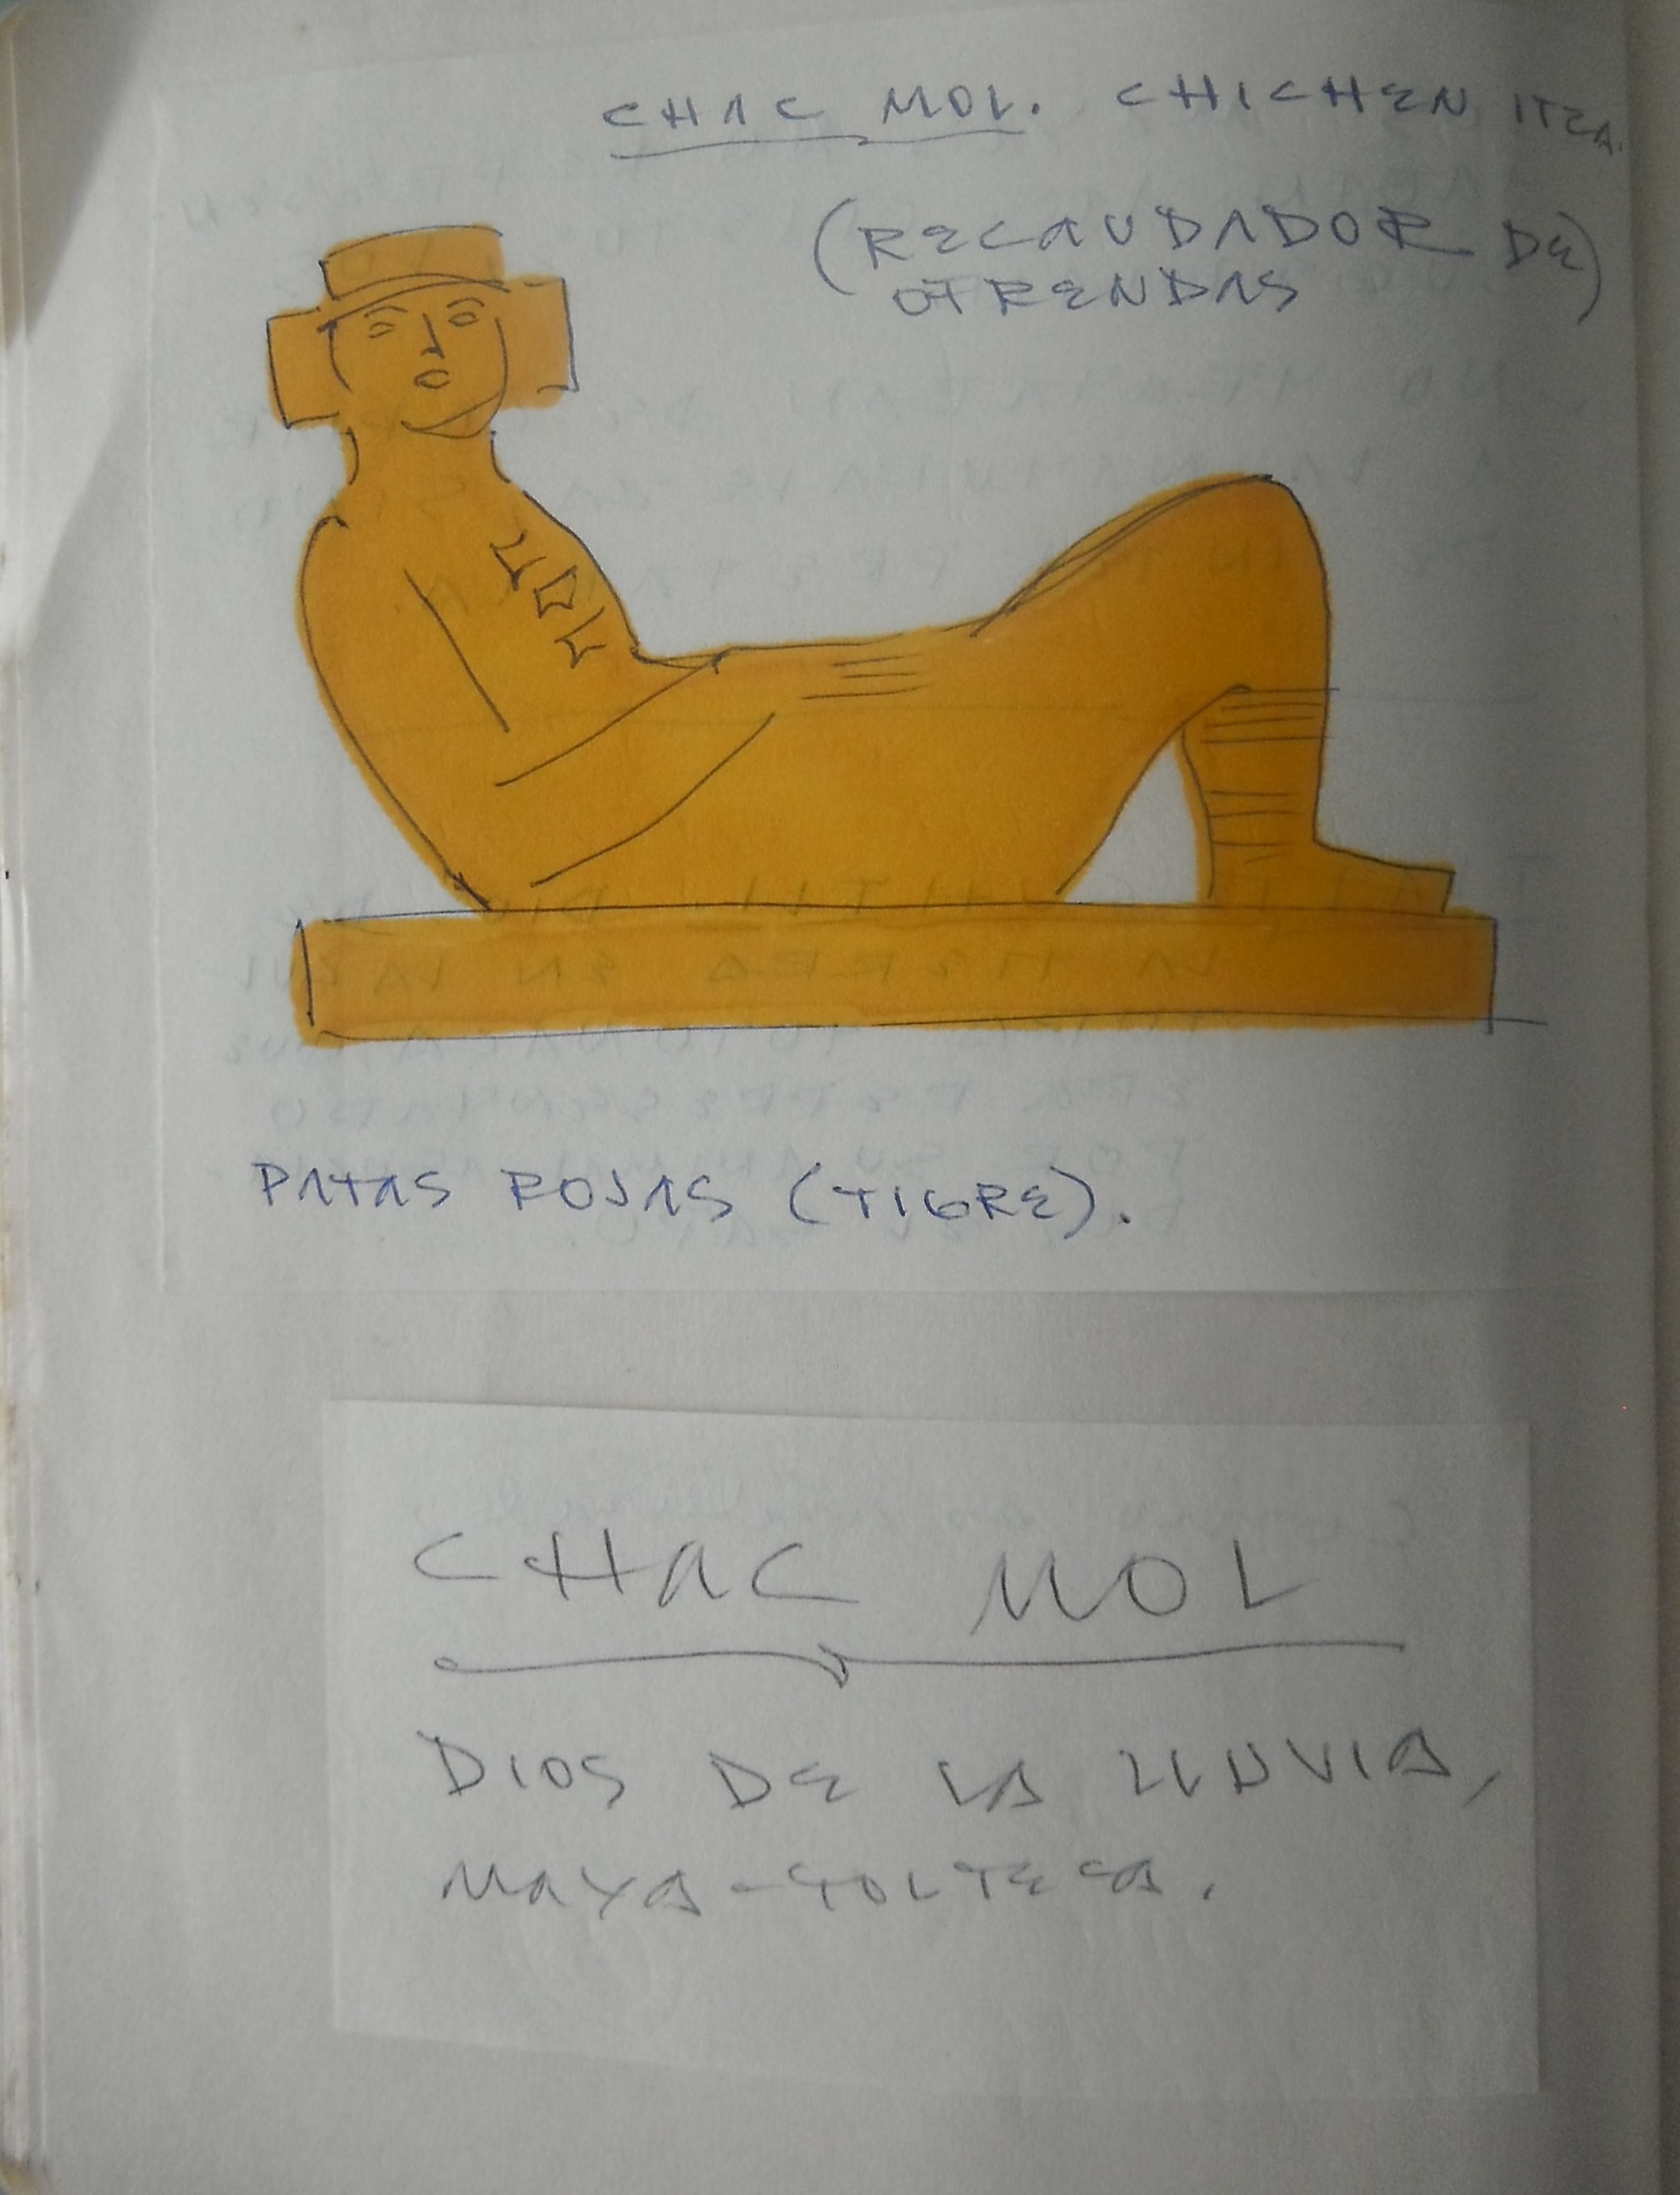 CHAC MOL. CHICHEN ITZA.
(RECAUDADOR DE)
OFRENDAS
PATAS ROJAS (TIGRE).
CHAC MOL
DIOS DE LA LLUVIA,
MAYA-TOLTECA.